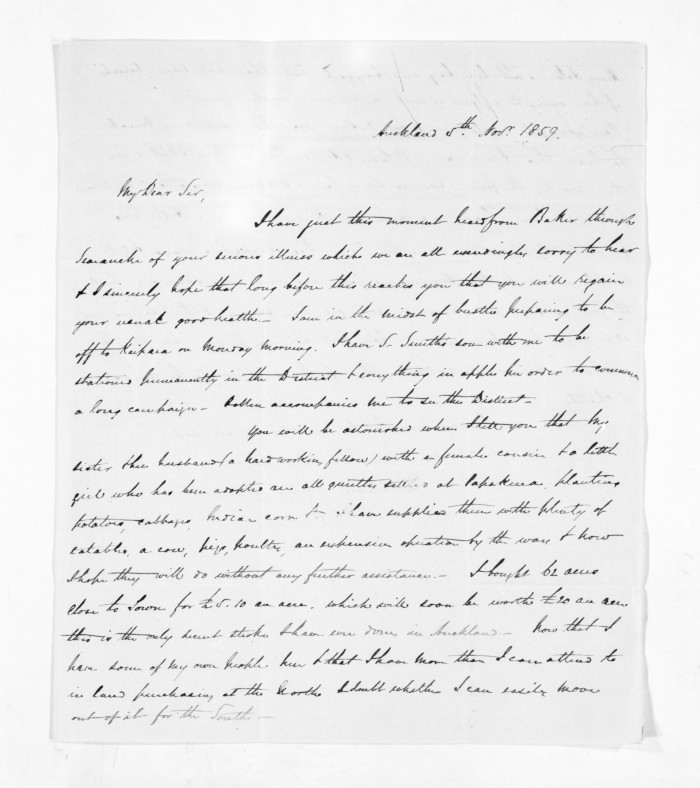 Auckland 5th. Novr. 1859.
My Dear Sir,
I have just this moment heard from Baker through
Searancke of your serious illness which we are all exceedingly sorry to hear
& I sincerely hope that long before this reaches you that you will regain
your usual good health – I am in the midst of bustle preparing to be
off to Kaipara on Monday morning. I have S. Smiths son with me to be
stationed permanently in the District & everything in apple pie order to commence
a long campaign – accompanies me to see the District –
You will be astonished when I tell you that my
sister & her husband (a hard working fellow) with a female cousin & a little
girl who has been adopted are all quietly settled at Papakura planting
potatoes, cabbages, Indian corn & I have supplied them with plenty of
eatables, a cow, pigs, poultry, an expensive operation by the way & now
I hope they will do without any further assistance. – I bought 62 acres
close to Town for £5.10 an acre. which will soon be worth £20 an acre
this is the only stroke I have ever done in Auckland – Now that I
have some of my own people here & that I have more than I can attend to
in land purchasing at the North I doubt whether I can easily move
out of it for the South –